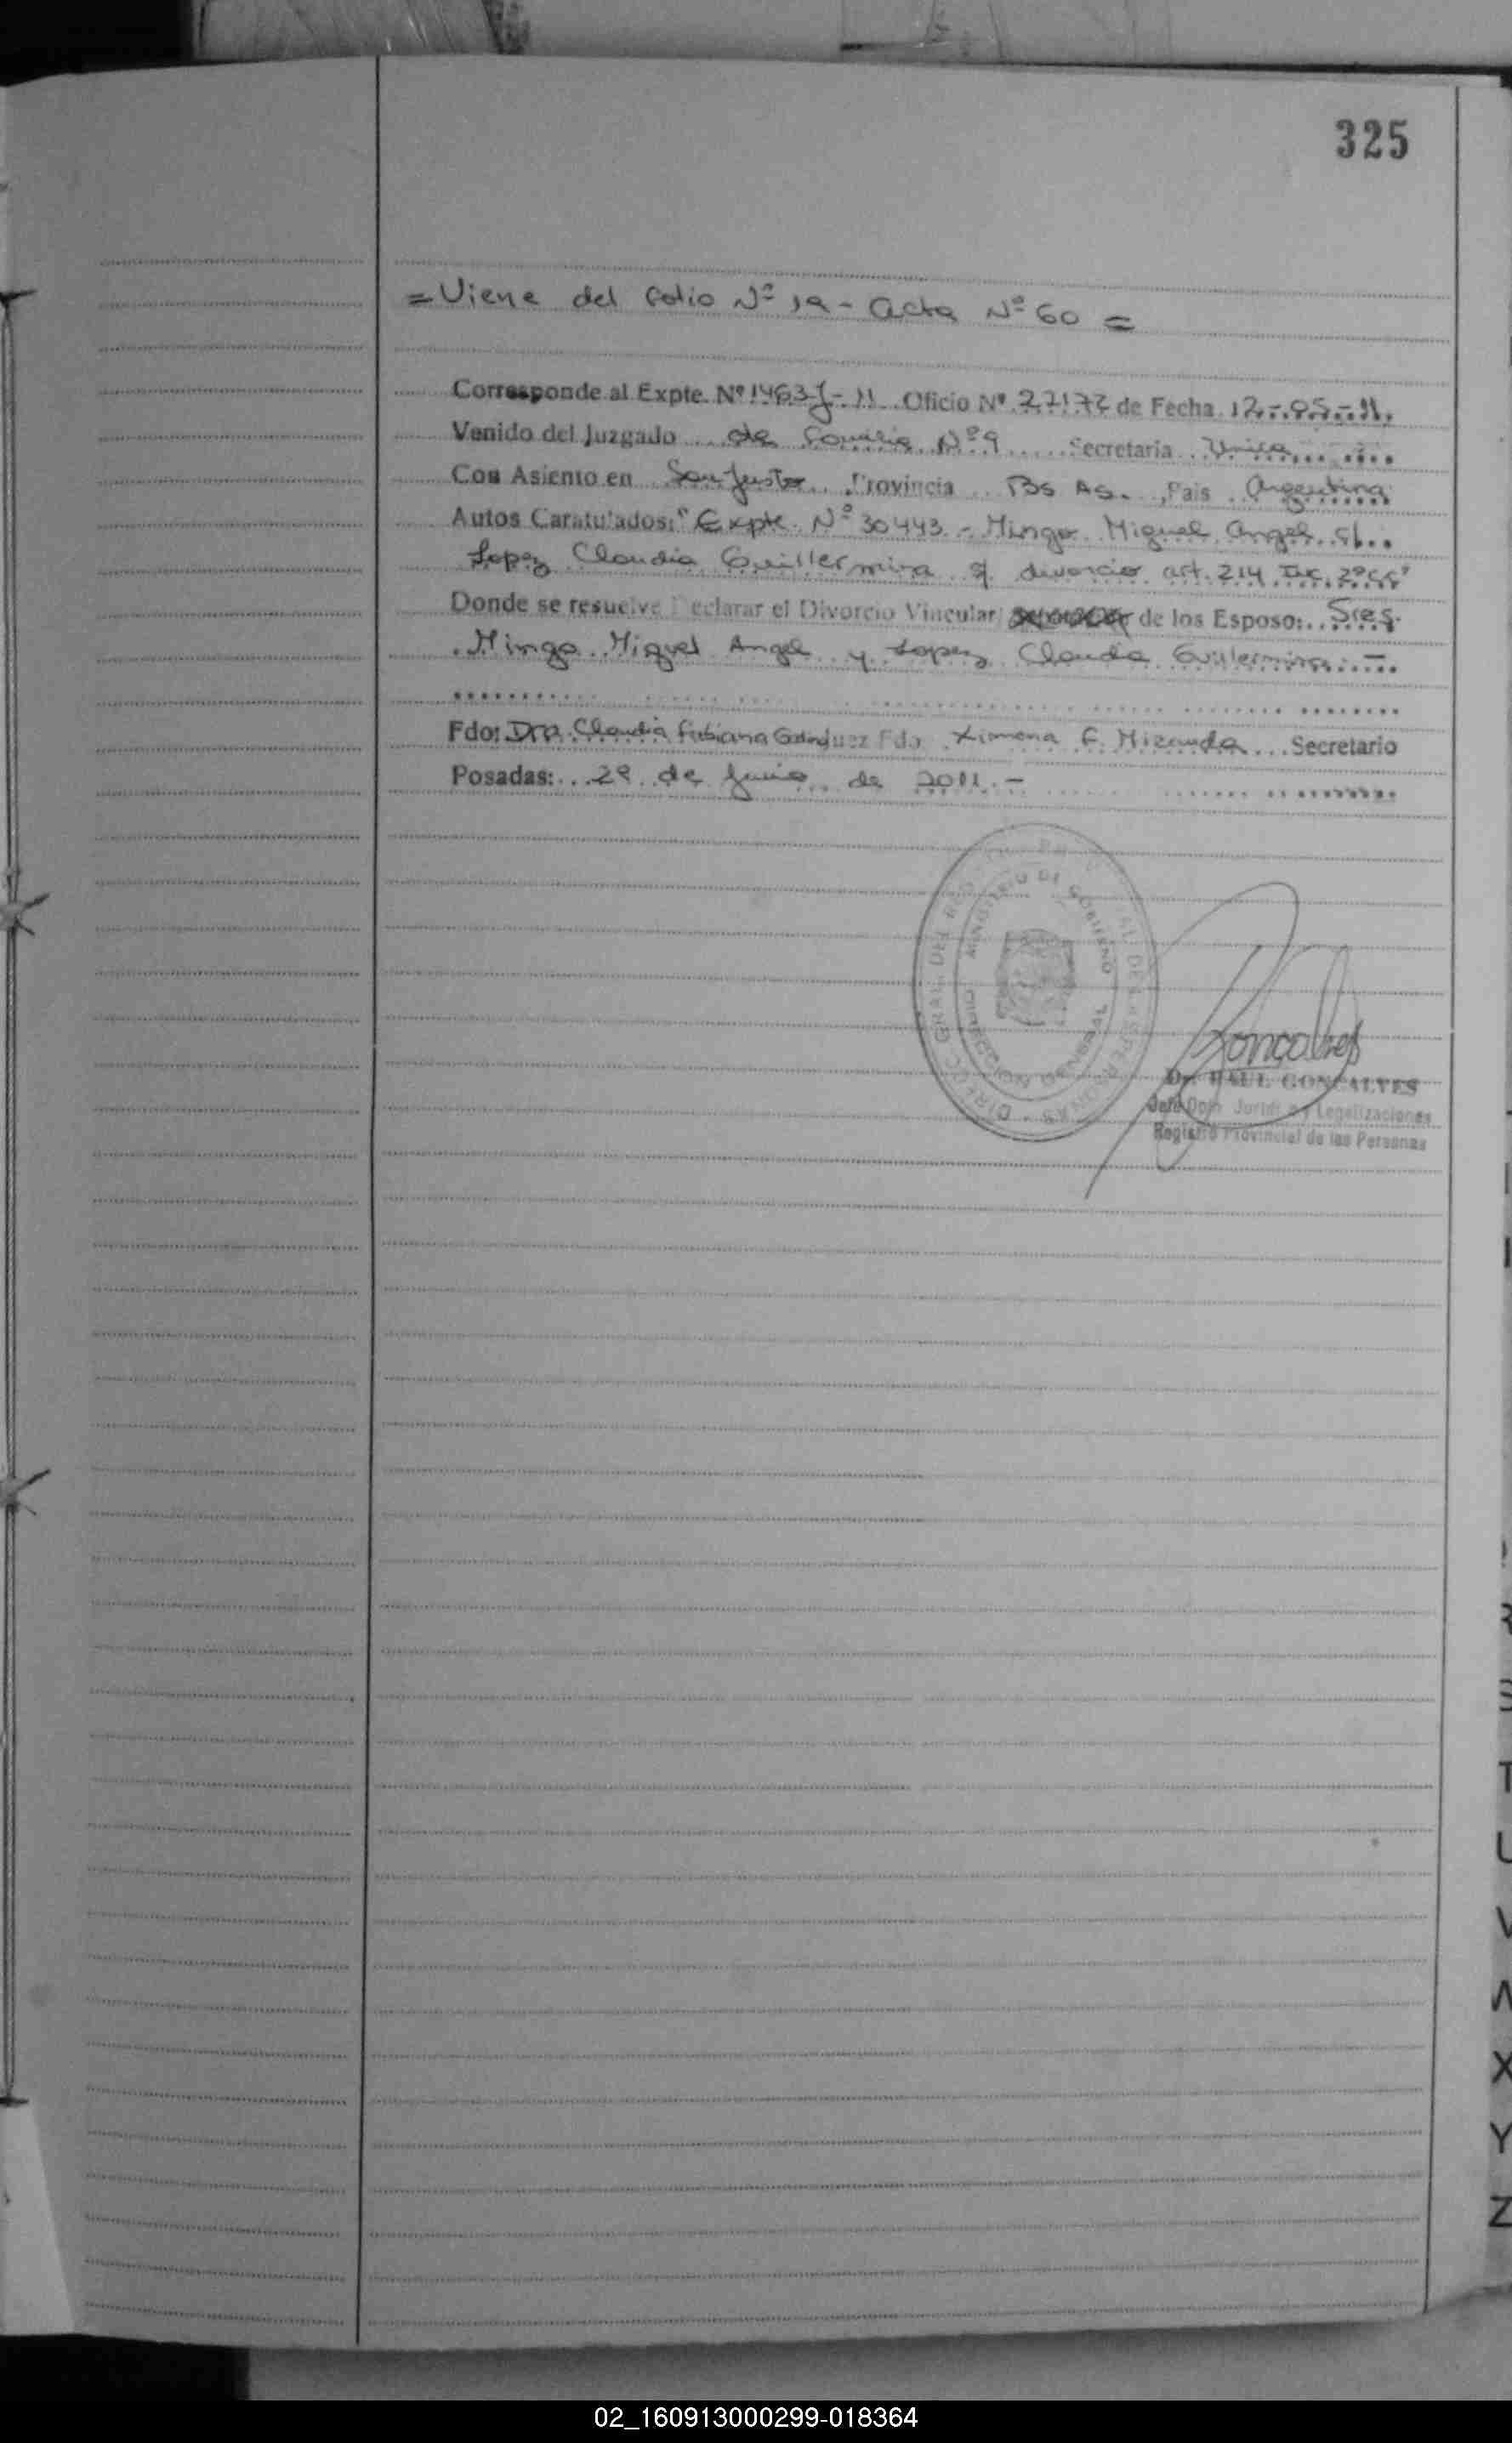 325
= Viene del folio Nº 19 - acta Nº 60 =
Corresponde al Expte. Nº 1463-J-11 Oficio Nº 27172 de Fecha 12-05-11.
Venido del Juzgado de familia Nº 9 Secretaria Unica
Con Asiento en San Justo Provincia Bs As. Pais Argentina
Autos Caratulados: "Expte. Nº 30443 - Mingo Miguel Angel c/
Lopez Claudia Guillermina s/ divorcio art. 214 Inc. 2º CC"
Donde se resuelve Declarar el Divorcio Vincular de los Esposo: Sres.
Mingo Miguel Angel y Lopez Claudia Guillermina. -
Fdo: Dra. Claudia Fabiana Fdo. Ximena F. Miranda Secretario
Posadas: 29 de Junio de 2011. -
MINISTERIO DE GOBIERNO
DIRECCION GENERAL
Goncalves
Dr. RAUL GONCALVES
Jefe Dpto. Juridico y Legalizaciones
Registro Provincial de las Personas
R
S
T
U
V
X
Y
Z
02_160913000299-018364